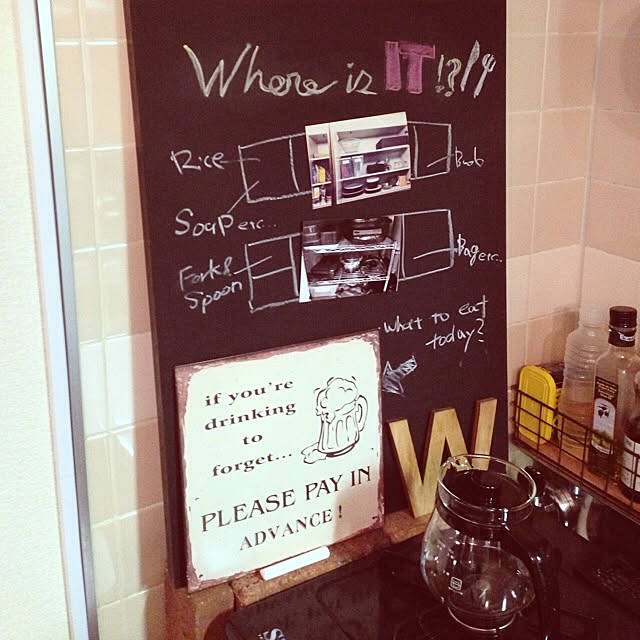 Where is IT!?
Rice
Soup etc..
Fork &
Spoon
Bag etc..
What to eat
today?
if you're
drinking
to
forget...
PLEASE PAY IN
ADVANCE!
W